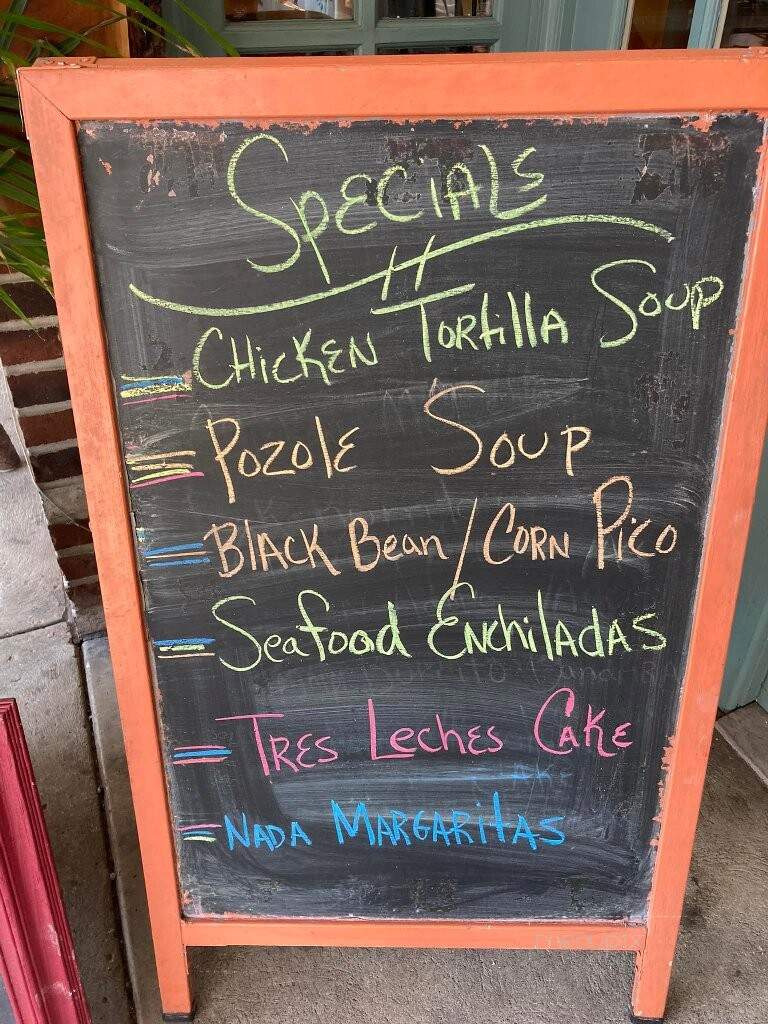 Specials
Chicken Tortilla Soup
Pozole Soup
Black Bean / Corn Pico
Seafood Enchiladas
Tres Leches Cake
Nada Margaritas